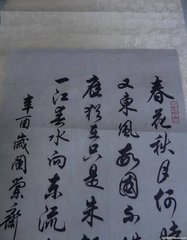 春花秋月何時
又東風故國不
應猶在只是朱
一江春水向东流
辛酉歲闌